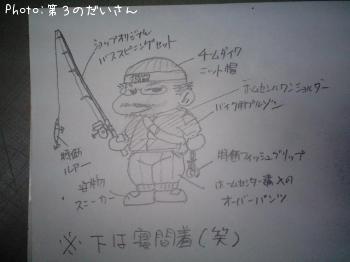 Photo:第3のだいさん
ショップオリジナル
バススピニングセット
チームダイワ
ニット帽
ホームセンパワンショルダー
バイク用ブルゾン
特価
ルアー
安物
スニーカー
特価フィッシュグリップ
ホームセンター購入の
オーバーパンツ
※下は寝間着(笑)